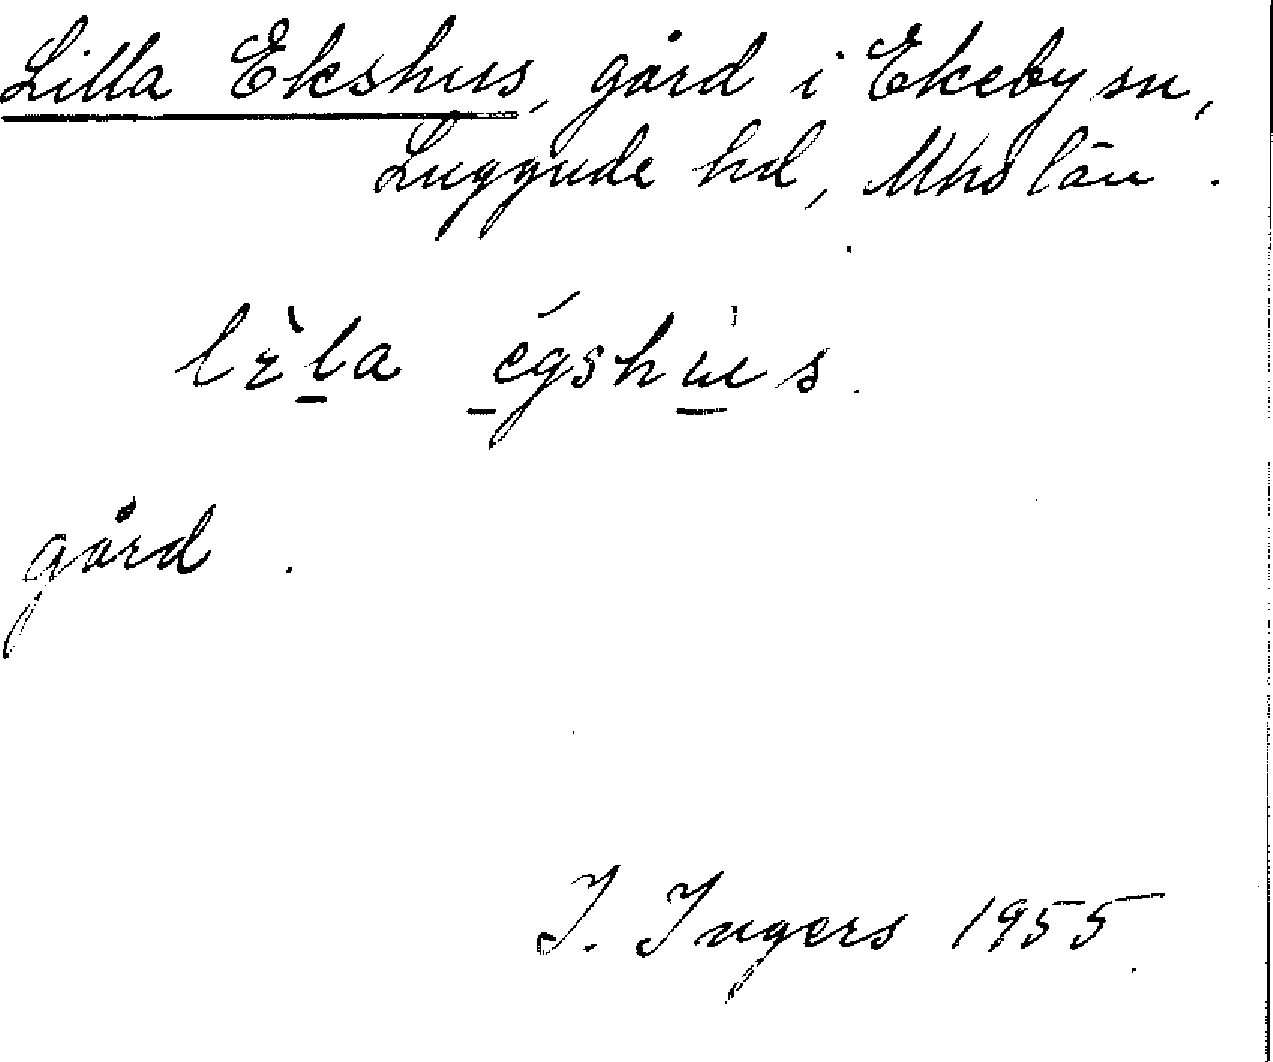 Lilla Ekshus, gård i Ekeby sn,
Luggude hd, Mhs län.
lɛ̀l̲a é̲gshu̲s.
gård.
I. Ingers 1955